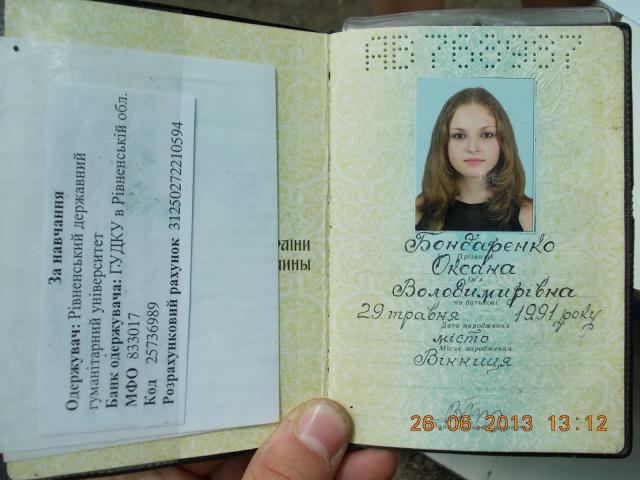 За навчання
Одержувач: Рівненський державний
гуманітарний університет
Банк одержувача: ГУДКУ в Рівненській обл.
МФО 833017
Код 25736989
Розрахунковий рахунок 31250272210594
раїни
ины
Бондаренко
Прізвище
Оксана
Ім'я
Володимирівна
по батькові
29 травня 1991 року
Дата народження
місто
Місце народження
Вінниця
26.06.2013 13:12